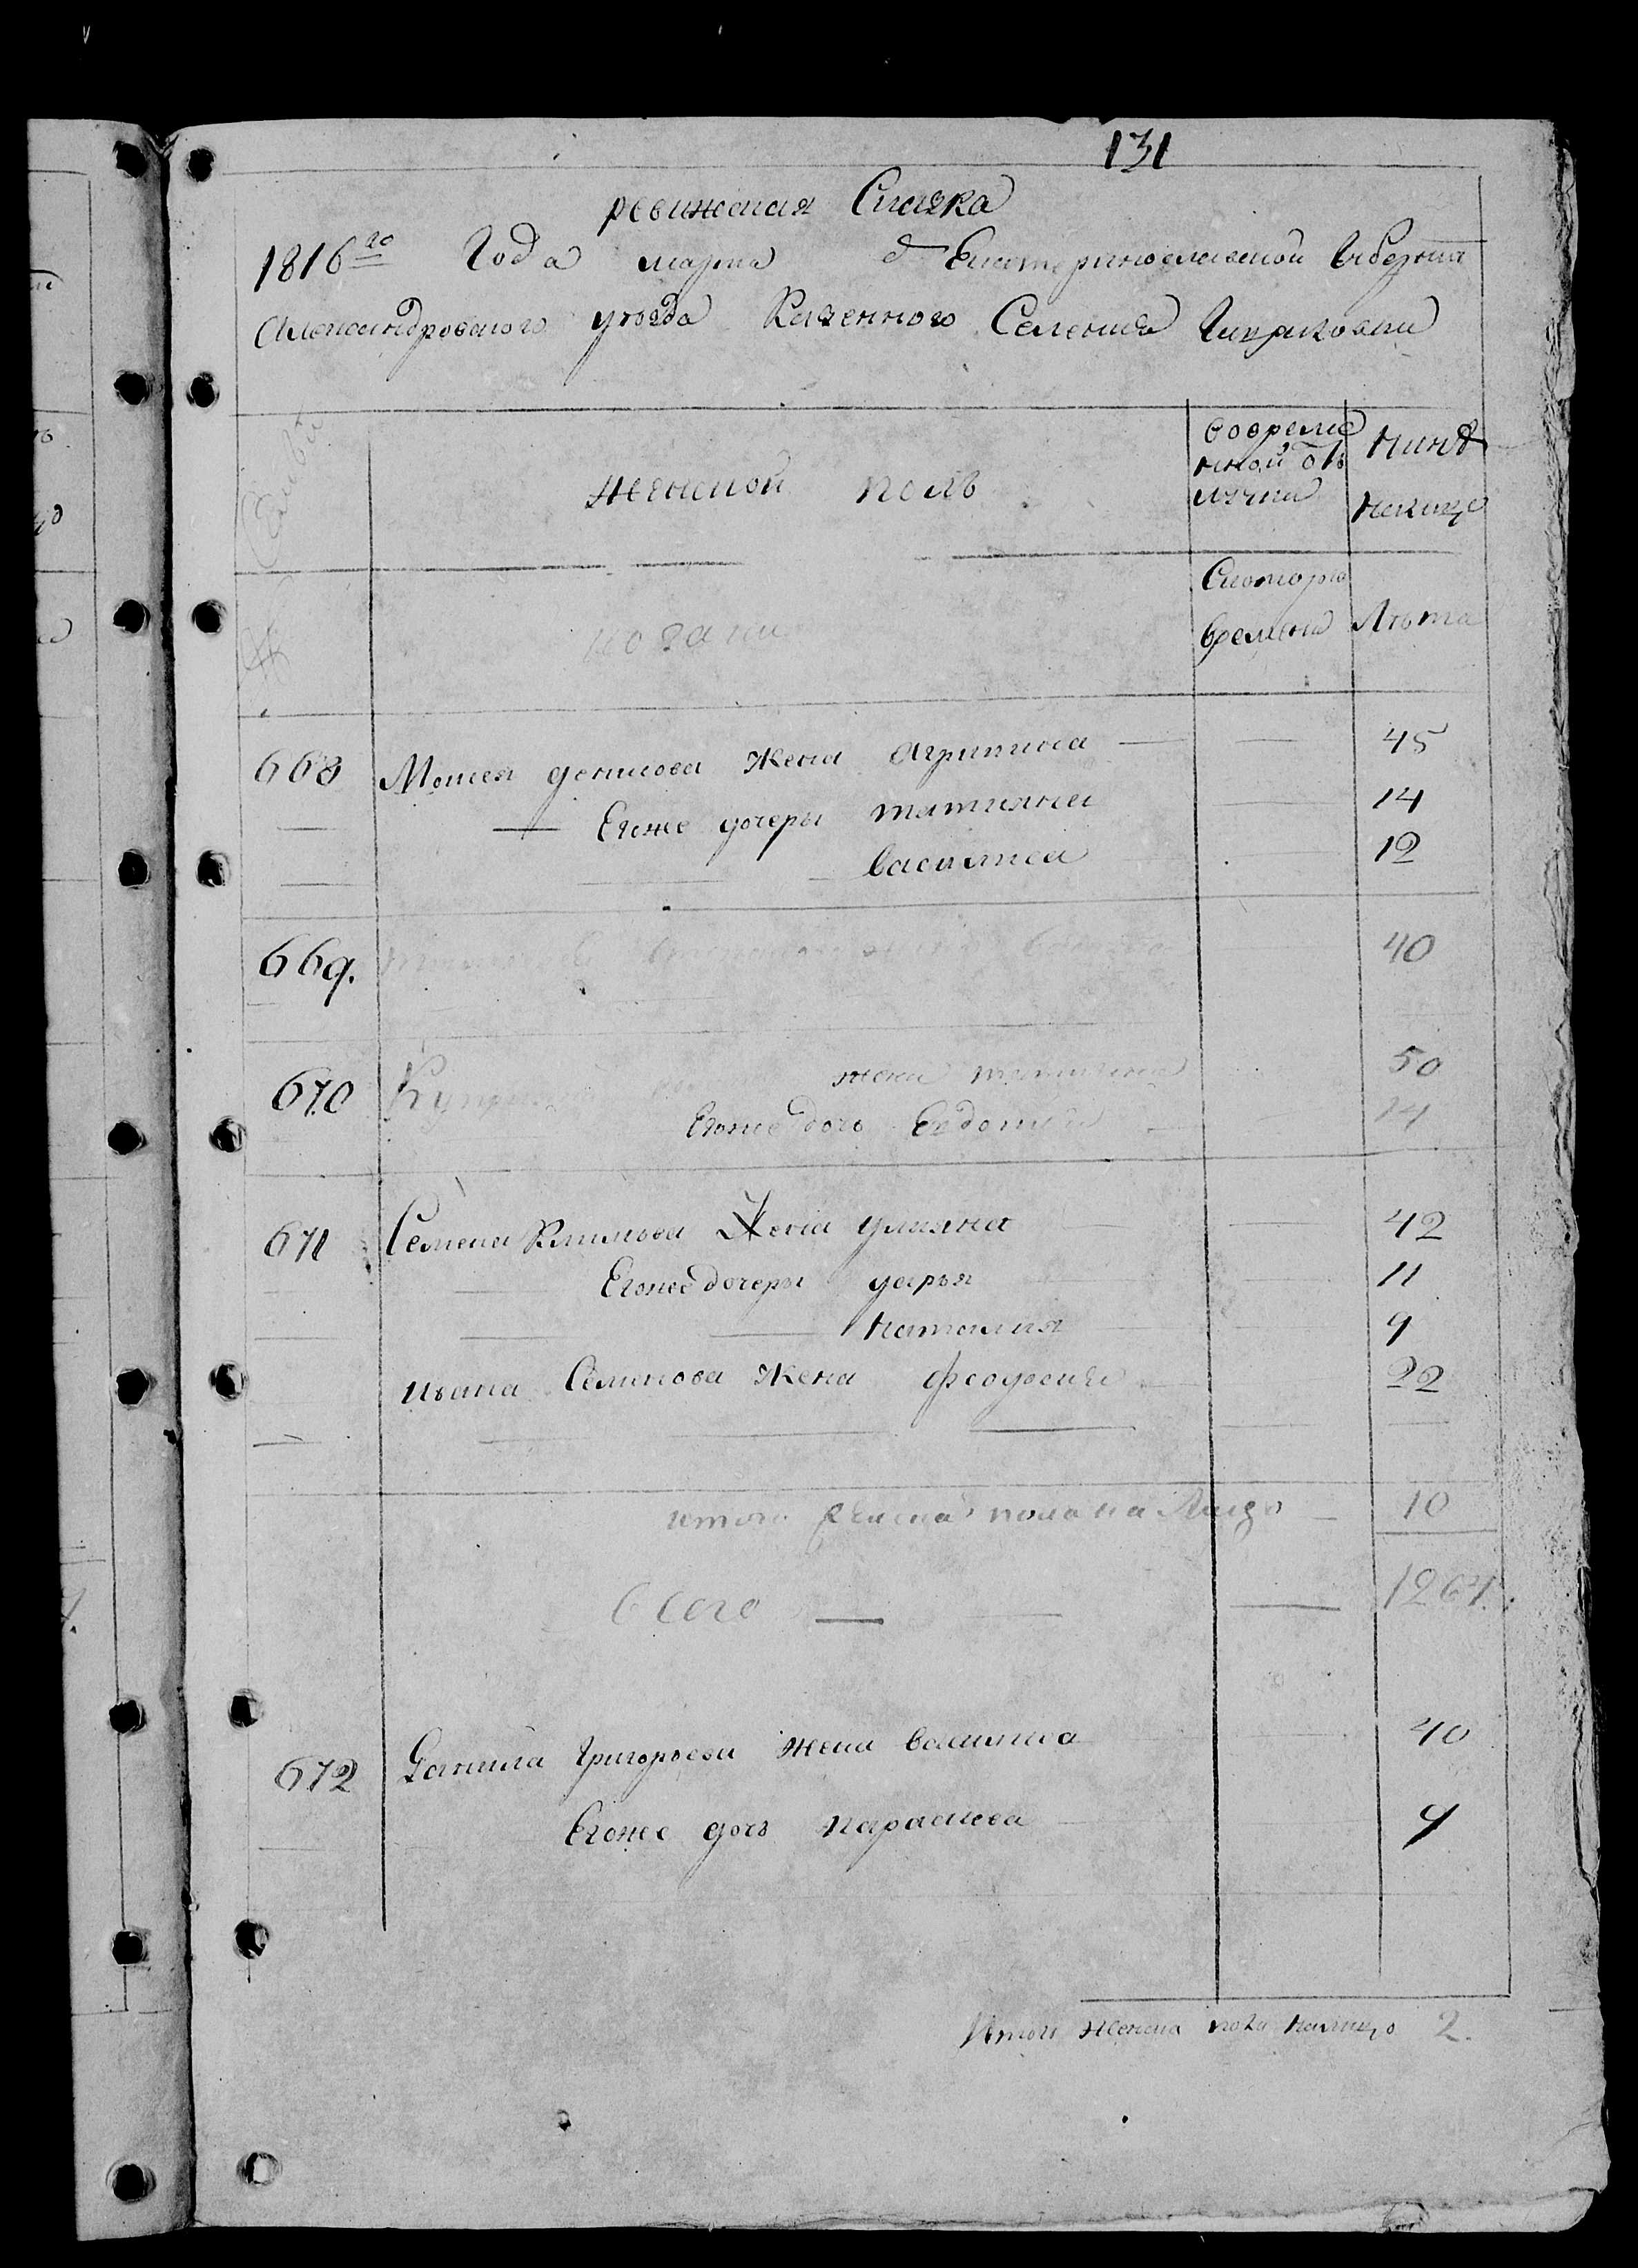 131
ревижская Сказка
1816го Года марта Екатеринославской Губернии
Александровского уѣзда Казенного Селения
женской полъ
вовреме
нной отъ
лучки
Нинѣ
налицо
Скоторго
времени
Лѣта
козаки
668 Мосея данилова жена Агрипина — — 45
— Егоже дочеры татияна 14
василиса 12
669. 40
670 жена татияна 50
Егоже дочь Евдокия 14
671 Семена Климова Жена улияна 42
Егоже дочеры дарья 11
наталия 9
ивана Семенова жена феодосия 22
итого женска пола на Лицо 10
Всего — 1264.
672 Данила Григорьева жена василиса 40
Егоже дочь параскева 9
Итого женска пола налицо 2.